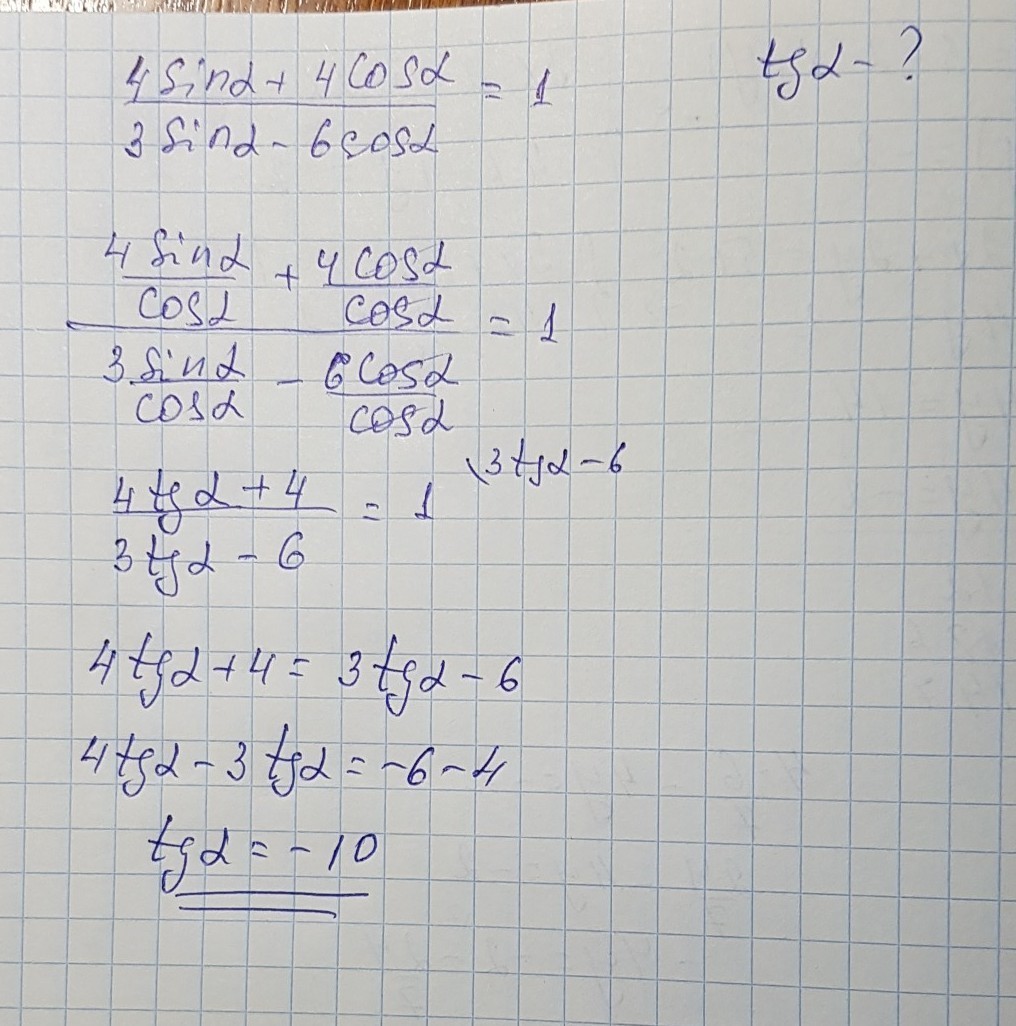 4 Sinα + 4 Cosα / 3 Sinα - 6 cosα = 1
tgα - ?
4 Sinα / cosα + 4 cosα / cosα / 3 Sinα / cosα - 6 cosα / cosα = 1
4 tgα + 4 / 3 tgα - 6 = 1 \3 tgα - 6
4 tgα + 4 = 3 tgα - 6
4 tgα - 3 tgα = -6 - 4
tgα = -10